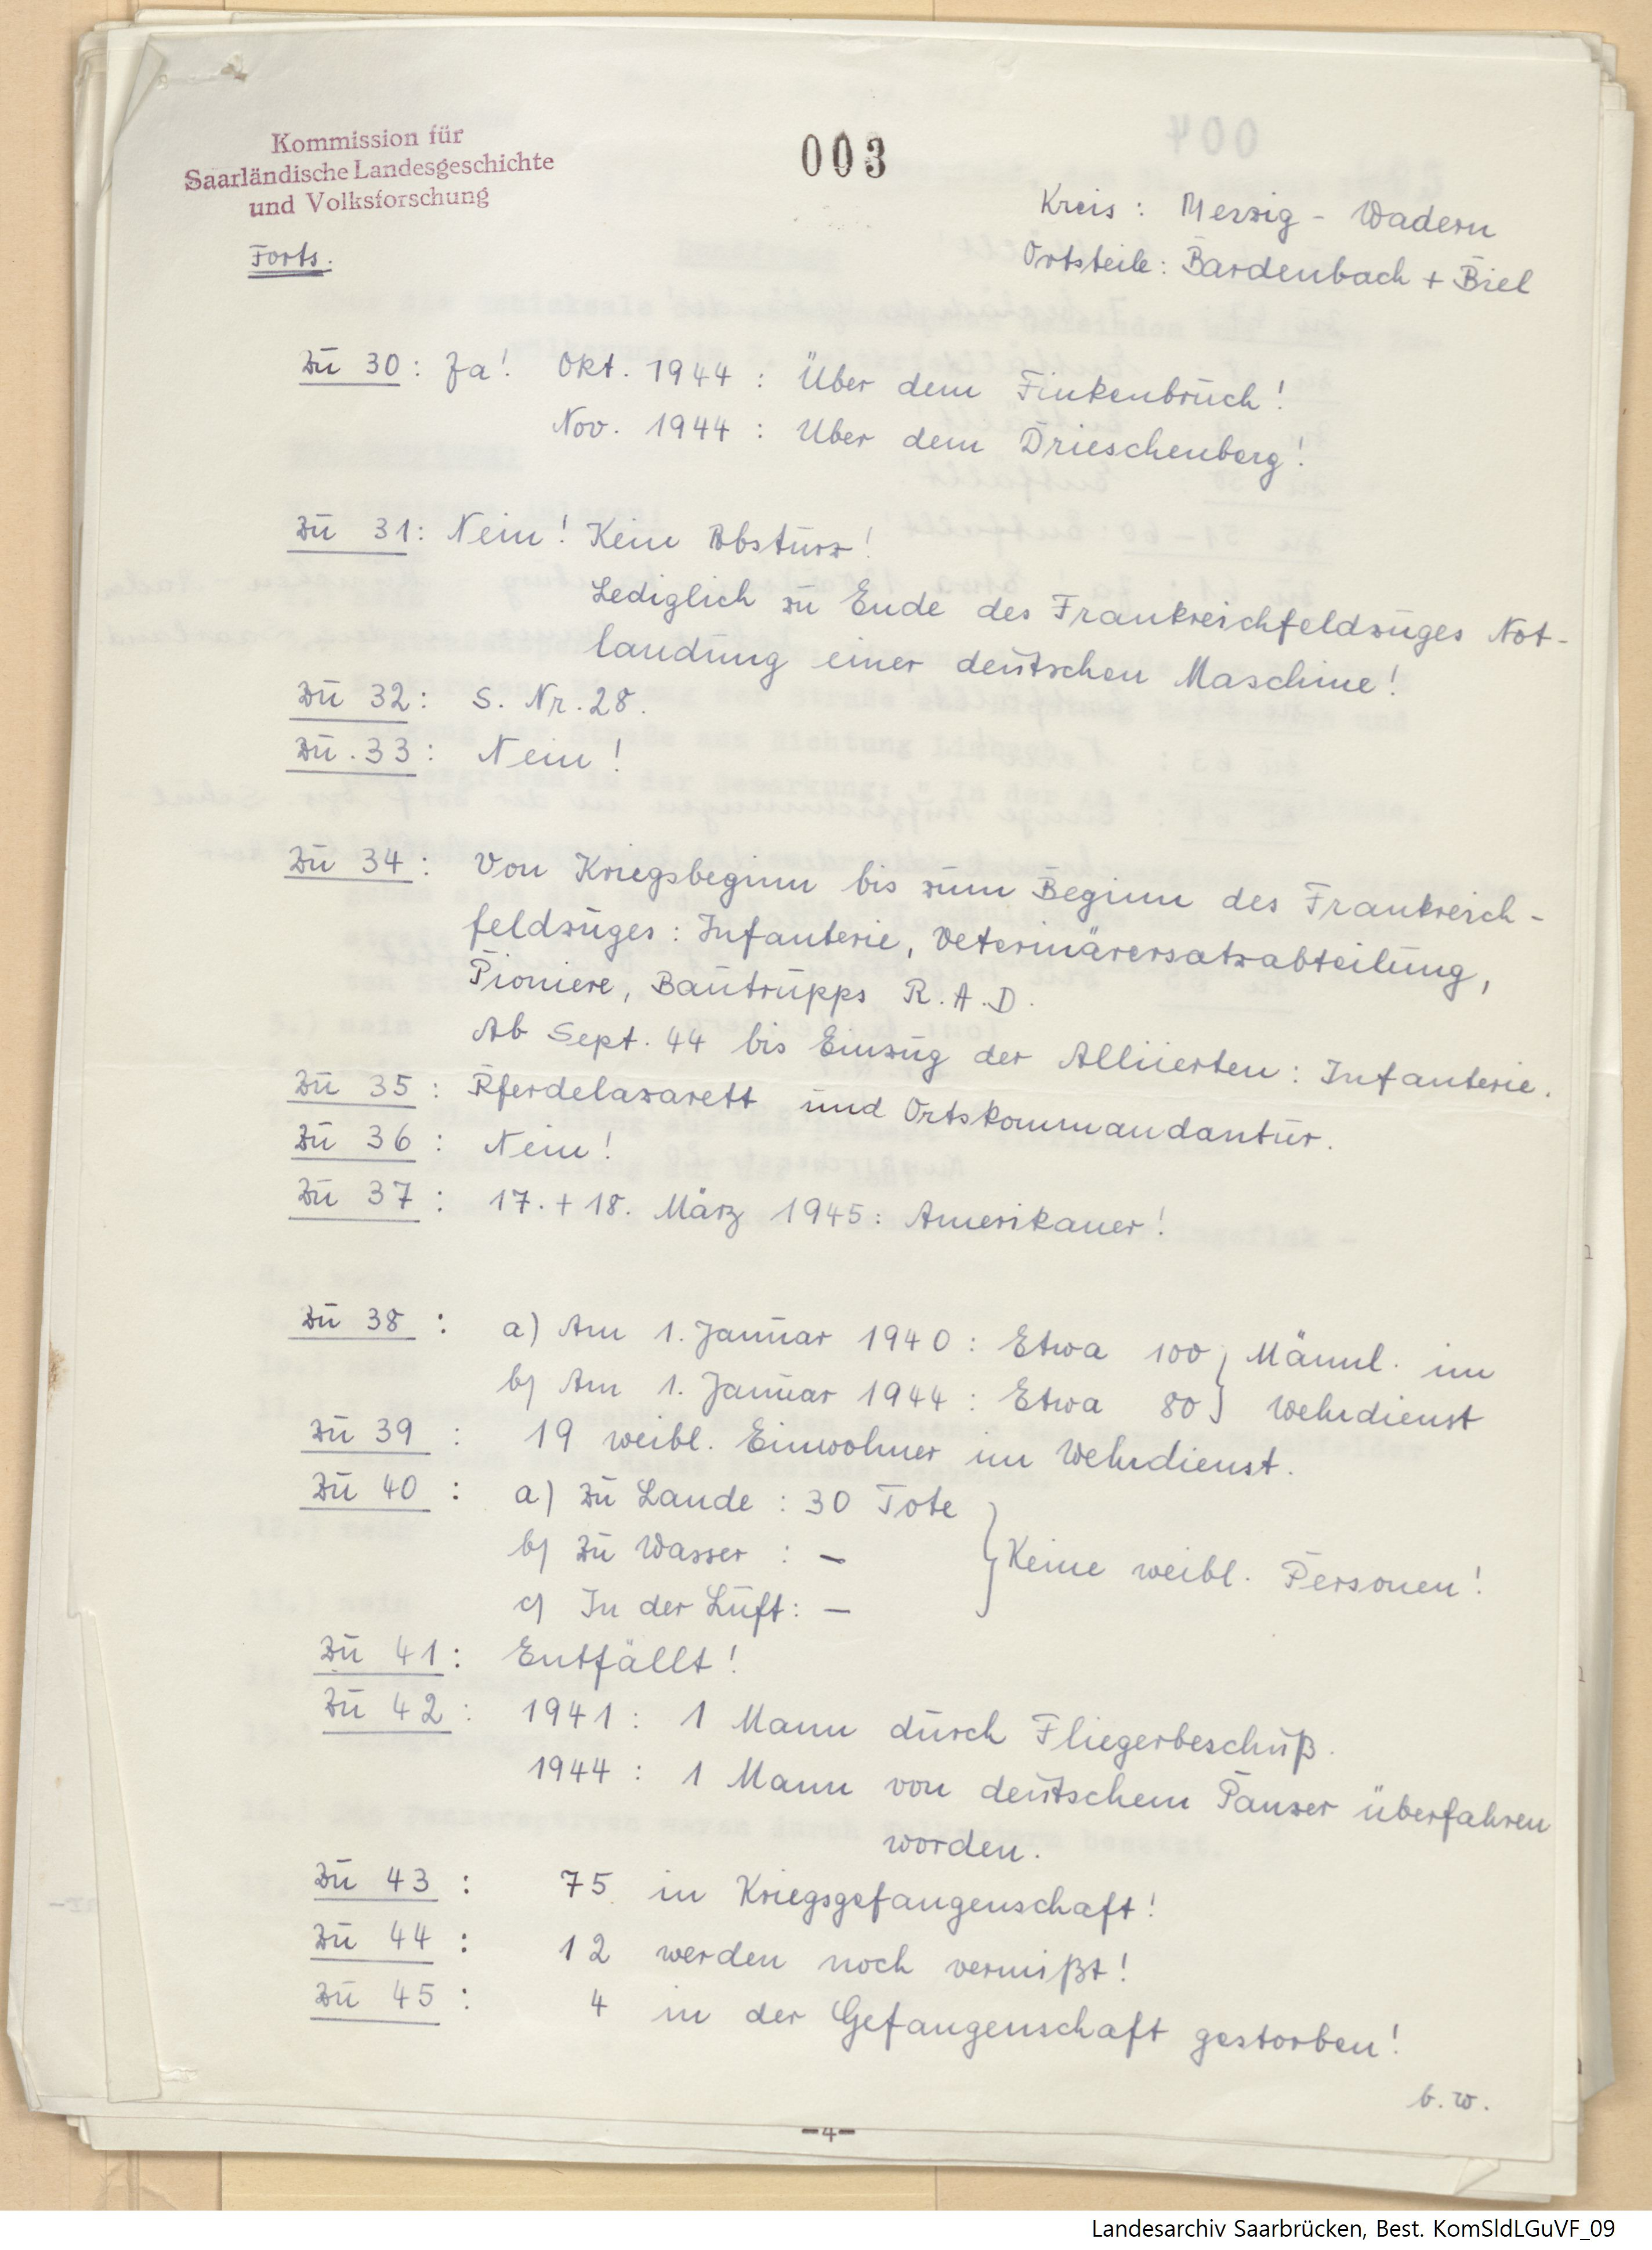 Kommission für
Saarländische Landesgeschichte
und Volksforschung
003
Kreis: Merzig - Wadern
Forts.
Ortsteile: Bardenbach + Biel
Zu 30: Ja! Okt. 1944: Über dem Finkenbruch!
Nov. 1944: Über dem Drieschenberg!
Zu 31: Nein! Kein Absturz!
Lediglich zu Ende des Frankreichfeldzuges Not-
landung einer deutschen Maschine!
Zu 32: S. Nr. 28.
Zu. 33: Nein!
Zu 34: Von Kriegsbeginn bis zum Beginn des Frankreich-
feldzuges: Infanterie, Veterinärersatzabteilung,
Pioniere, Bautrupps R.A.D.
Ab Sept. 44 bis Einzug der Alliierten: Infanterie.
Zu 35: Pferdelazarett und Ortskommandantur.
Zu 36: Nein!
Zu 37: 17. + 18. März 1945: Amerikaner!
Zu 38: a) Am 1. Januar 1940: Etwa 100 } Männl. im
b) Am 1. Januar 1944: Etwa 80 } Wehrdienst
Zu 39: 19 weibl. Einwohner im Wehrdienst.
Zu 40: a) Zu Lande: 30 Tote
b) Zu Wasser: — } Keine weibl. Personen!
c) In der Luft: —
Zu 41: Entfällt!
Zu 42: 1941: 1 Mann durch Fliegerbeschuß.
1944: 1 Mann von deutschem Panzer überfahren
worden.
Zu 43: 75 in Kriegsgefangenschaft!
Zu 44: 12 werden noch vermißt!
Zu 45: 4 in der Gefangenschaft gestorben!
b.w.
-4-
Landesarchiv Saarbrücken, Best. KomSldLGuVF_09